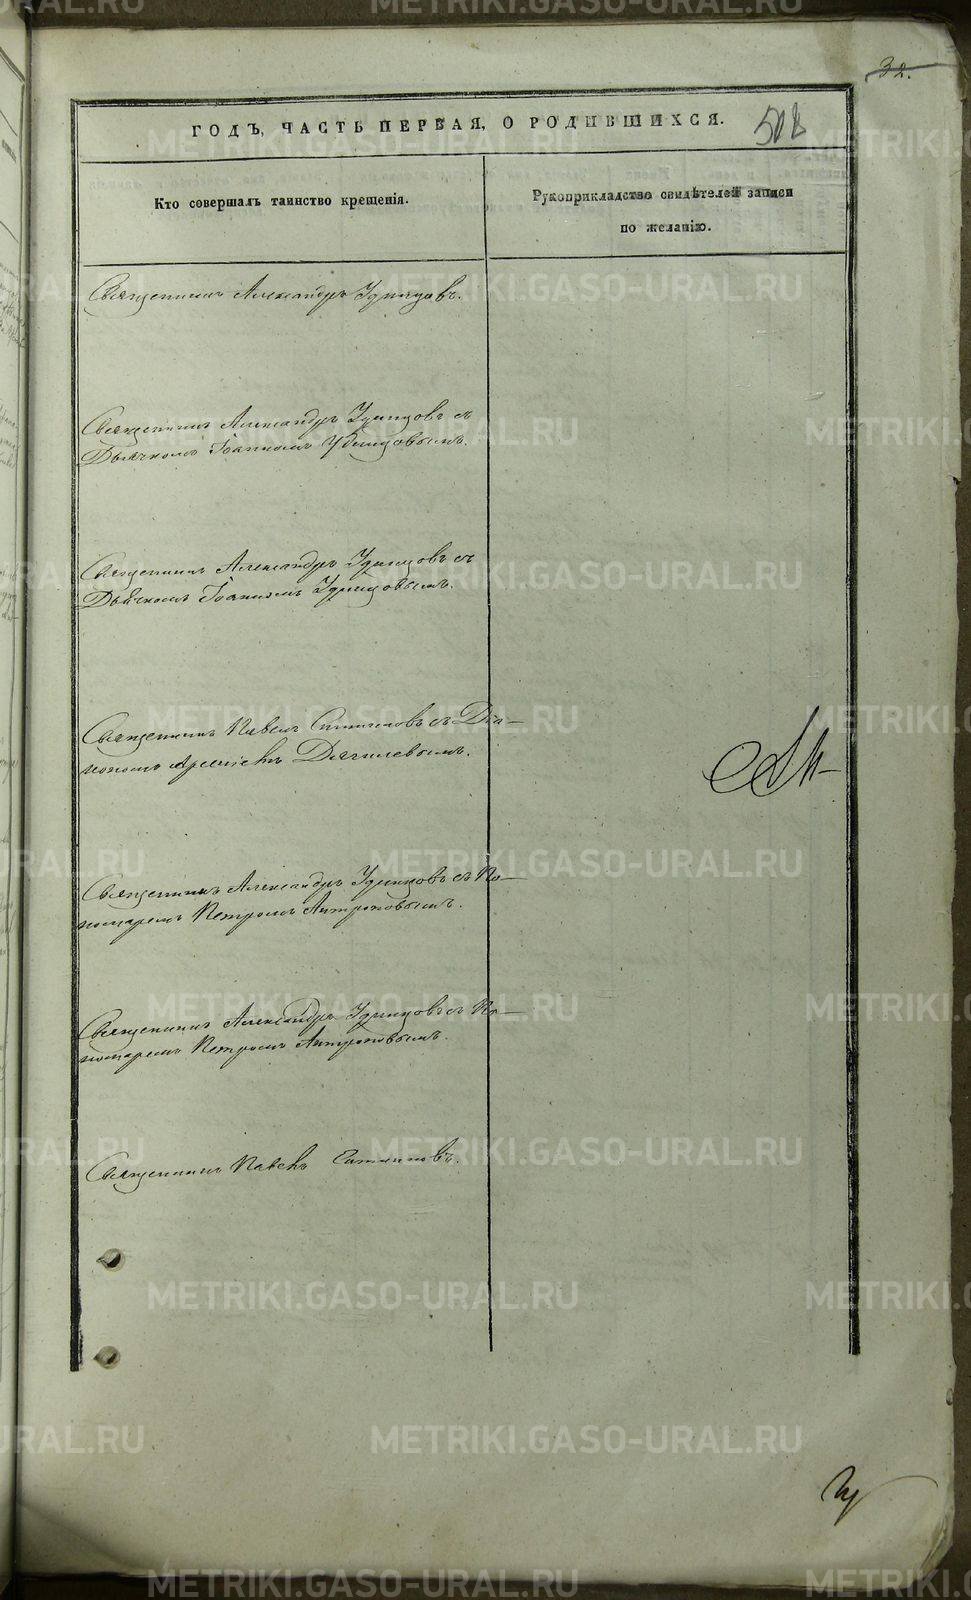 32.
ГОДЪ, ЧАСТЬ ПЕРВАЯ, О РОДИВШИХСЯ.
Кто совершалъ таинство крещенія.
Рукоприкладство свидѣтелей записи
по желанію.
Священникъ Александръ Удинцовъ.
Священникъ Александръ Удинцовъ съ
Дьячкомъ Іоанномъ Удинцовымъ.
Священникъ Александръ Удинцовъ съ
Дьячкомъ Іоанномъ Удинцовымъ.
Священникъ Павелъ съ Діа-
кономъ Дягилевымъ.
Священникъ Александръ Удинцовъ съ По-
номаремъ Петромъ Антроповымъ.
Священникъ Александръ Удинцовъ съ По-
номаремъ Петромъ Антроповымъ.
Священникъ Павелъ
METRIKI.GASO-URAL.RU